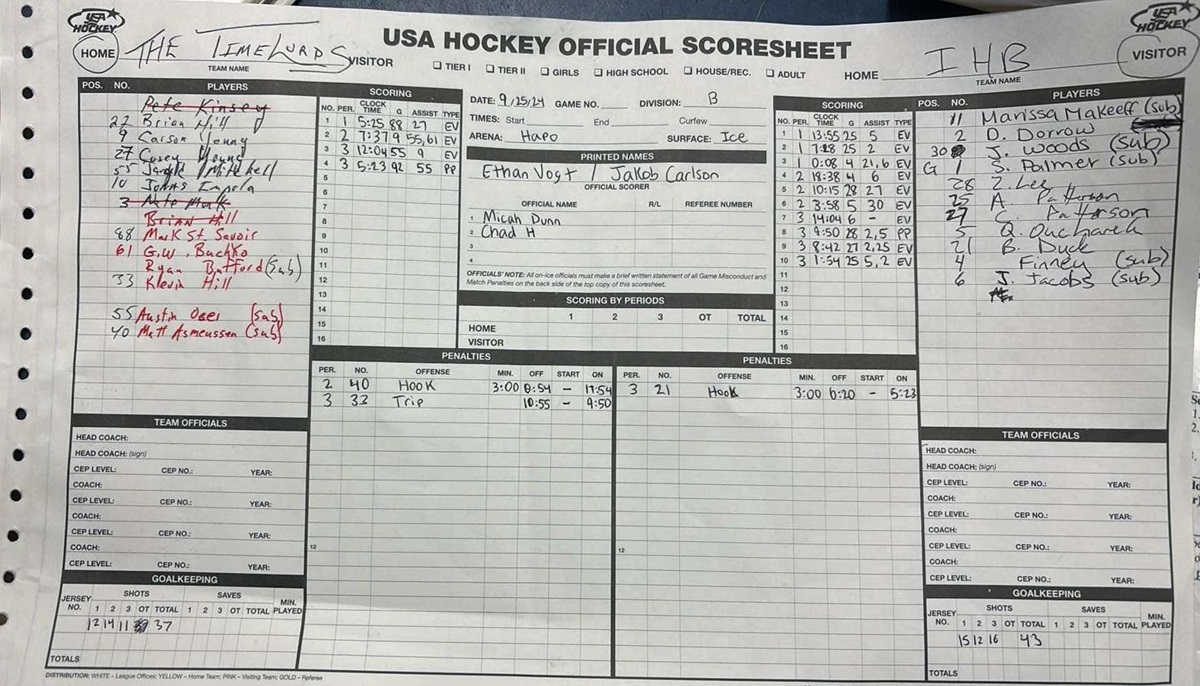 USA HOCKEY
HOME
THE TIMELURDS
TEAM NAME
VISITOR
USA HOCKEY OFFICIAL SCORESHEET
TIER I TIER II GIRLS HIGH SCHOOL HOUSE/REC. ADULT
HOME
IHB
TEAM NAME
USA HOCKEY
VISITOR
POS. NO. PLAYERS
Pete Kinsey
22 Brian Hill
9 Carson Young
27 Casey Young
55 Mitchell
10 Jonas
3 Nate
Brian Hill
88 Mark St. Savoir
61 G.W. Buchko
Ryan Batford (Sub)
33 Klevin Hill
55 Austin Oser (Sub)
40 Matt Asmeussen (Sub)
SCORING
NO. PER. CLOCK TIME G ASSIST TYPE
1 1 5:25 88 27 EV
2 2 7:37 9 55,61 EV
3 3 12:04 55 9 EV
4 3 5:23 92 55 PP
5
6
7
8
9
10
11
12
13
14
15
16
DATE: 9/25/24 GAME NO. DIVISION: B
TIMES: Start End Curfew
ARENA: Hapo SURFACE: Ice
PRINTED NAMES
Ethan Vogt / Jakob Carlson
OFFICIAL SCORER
OFFICIAL NAME R/L REFEREE NUMBER
1 Micah Dunn
2 Chad H
3
4
OFFICIALS' NOTE: All on-ice officials must make a brief written statement of all Game Misconduct and
Match Penalties on the back side of the top copy of this scoresheet.
SCORING BY PERIODS
1 2 3 OT TOTAL
HOME
VISITOR
SCORING
NO. PER. CLOCK TIME G ASSIST TYPE
1 1 13:55 25 5 EV
2 1 7:28 25 2 EV
3 1 0:08 4 21,6 EV
4 2 18:38 4 6 EV
5 2 10:15 28 27 EV
6 2 3:58 5 30 EV
7 3 14:04 6 - EV
8 3 9:50 28 2,5 PP
9 3 8:42 27 2,25 EV
10 3 1:54 25 5,2 EV
11
12
13
14
15
16
POS. NO. PLAYERS
11 Marissa Makeeff (Sub)
2 D. Dorrow
30 J. Woods (Sub)
G 1 S. Palmer (Sub)
28 Z. Lee
25 A. Patterson
27 C. Patterson
5 Q. Ouchareck
21 B. Duck
4 Finney (sub)
6 J. Jacobs (sub)
PENALTIES
PER. NO. OFFENSE MIN. OFF START ON
2 40 Hook 3:00 0:54 - 17:54
3 33 Trip 10:55 - 9:50
12
PENALTIES
PER. NO. OFFENSE MIN. OFF START ON
3 21 Hook 3:00 6:20 - 5:23
12
TEAM OFFICIALS
HEAD COACH:
HEAD COACH: (sign)
CEP LEVEL: CEP NO.: YEAR:
COACH:
CEP LEVEL: CEP NO.: YEAR:
COACH:
CEP LEVEL: CEP NO.: YEAR:
COACH:
CEP LEVEL: CEP NO.: YEAR:
GOALKEEPING
JERSEY NO. SHOTS SAVES MIN. PLAYED
1 2 3 OT TOTAL 1 2 3 OT TOTAL
12 14 11 37
TOTALS
TEAM OFFICIALS
HEAD COACH:
HEAD COACH: (sign)
CEP LEVEL: CEP NO.: YEAR:
COACH:
CEP LEVEL: CEP NO.: YEAR:
COACH:
CEP LEVEL: CEP NO.: YEAR:
COACH:
CEP LEVEL: CEP NO.: YEAR:
GOALKEEPING
JERSEY NO. SHOTS SAVES MIN. PLAYED
1 2 3 OT TOTAL 1 2 3 OT TOTAL
15 12 16 43
TOTALS
DISTRIBUTION: WHITE – League Offices; YELLOW – Home Team; PINK – Visiting Team; GOLD – Referee